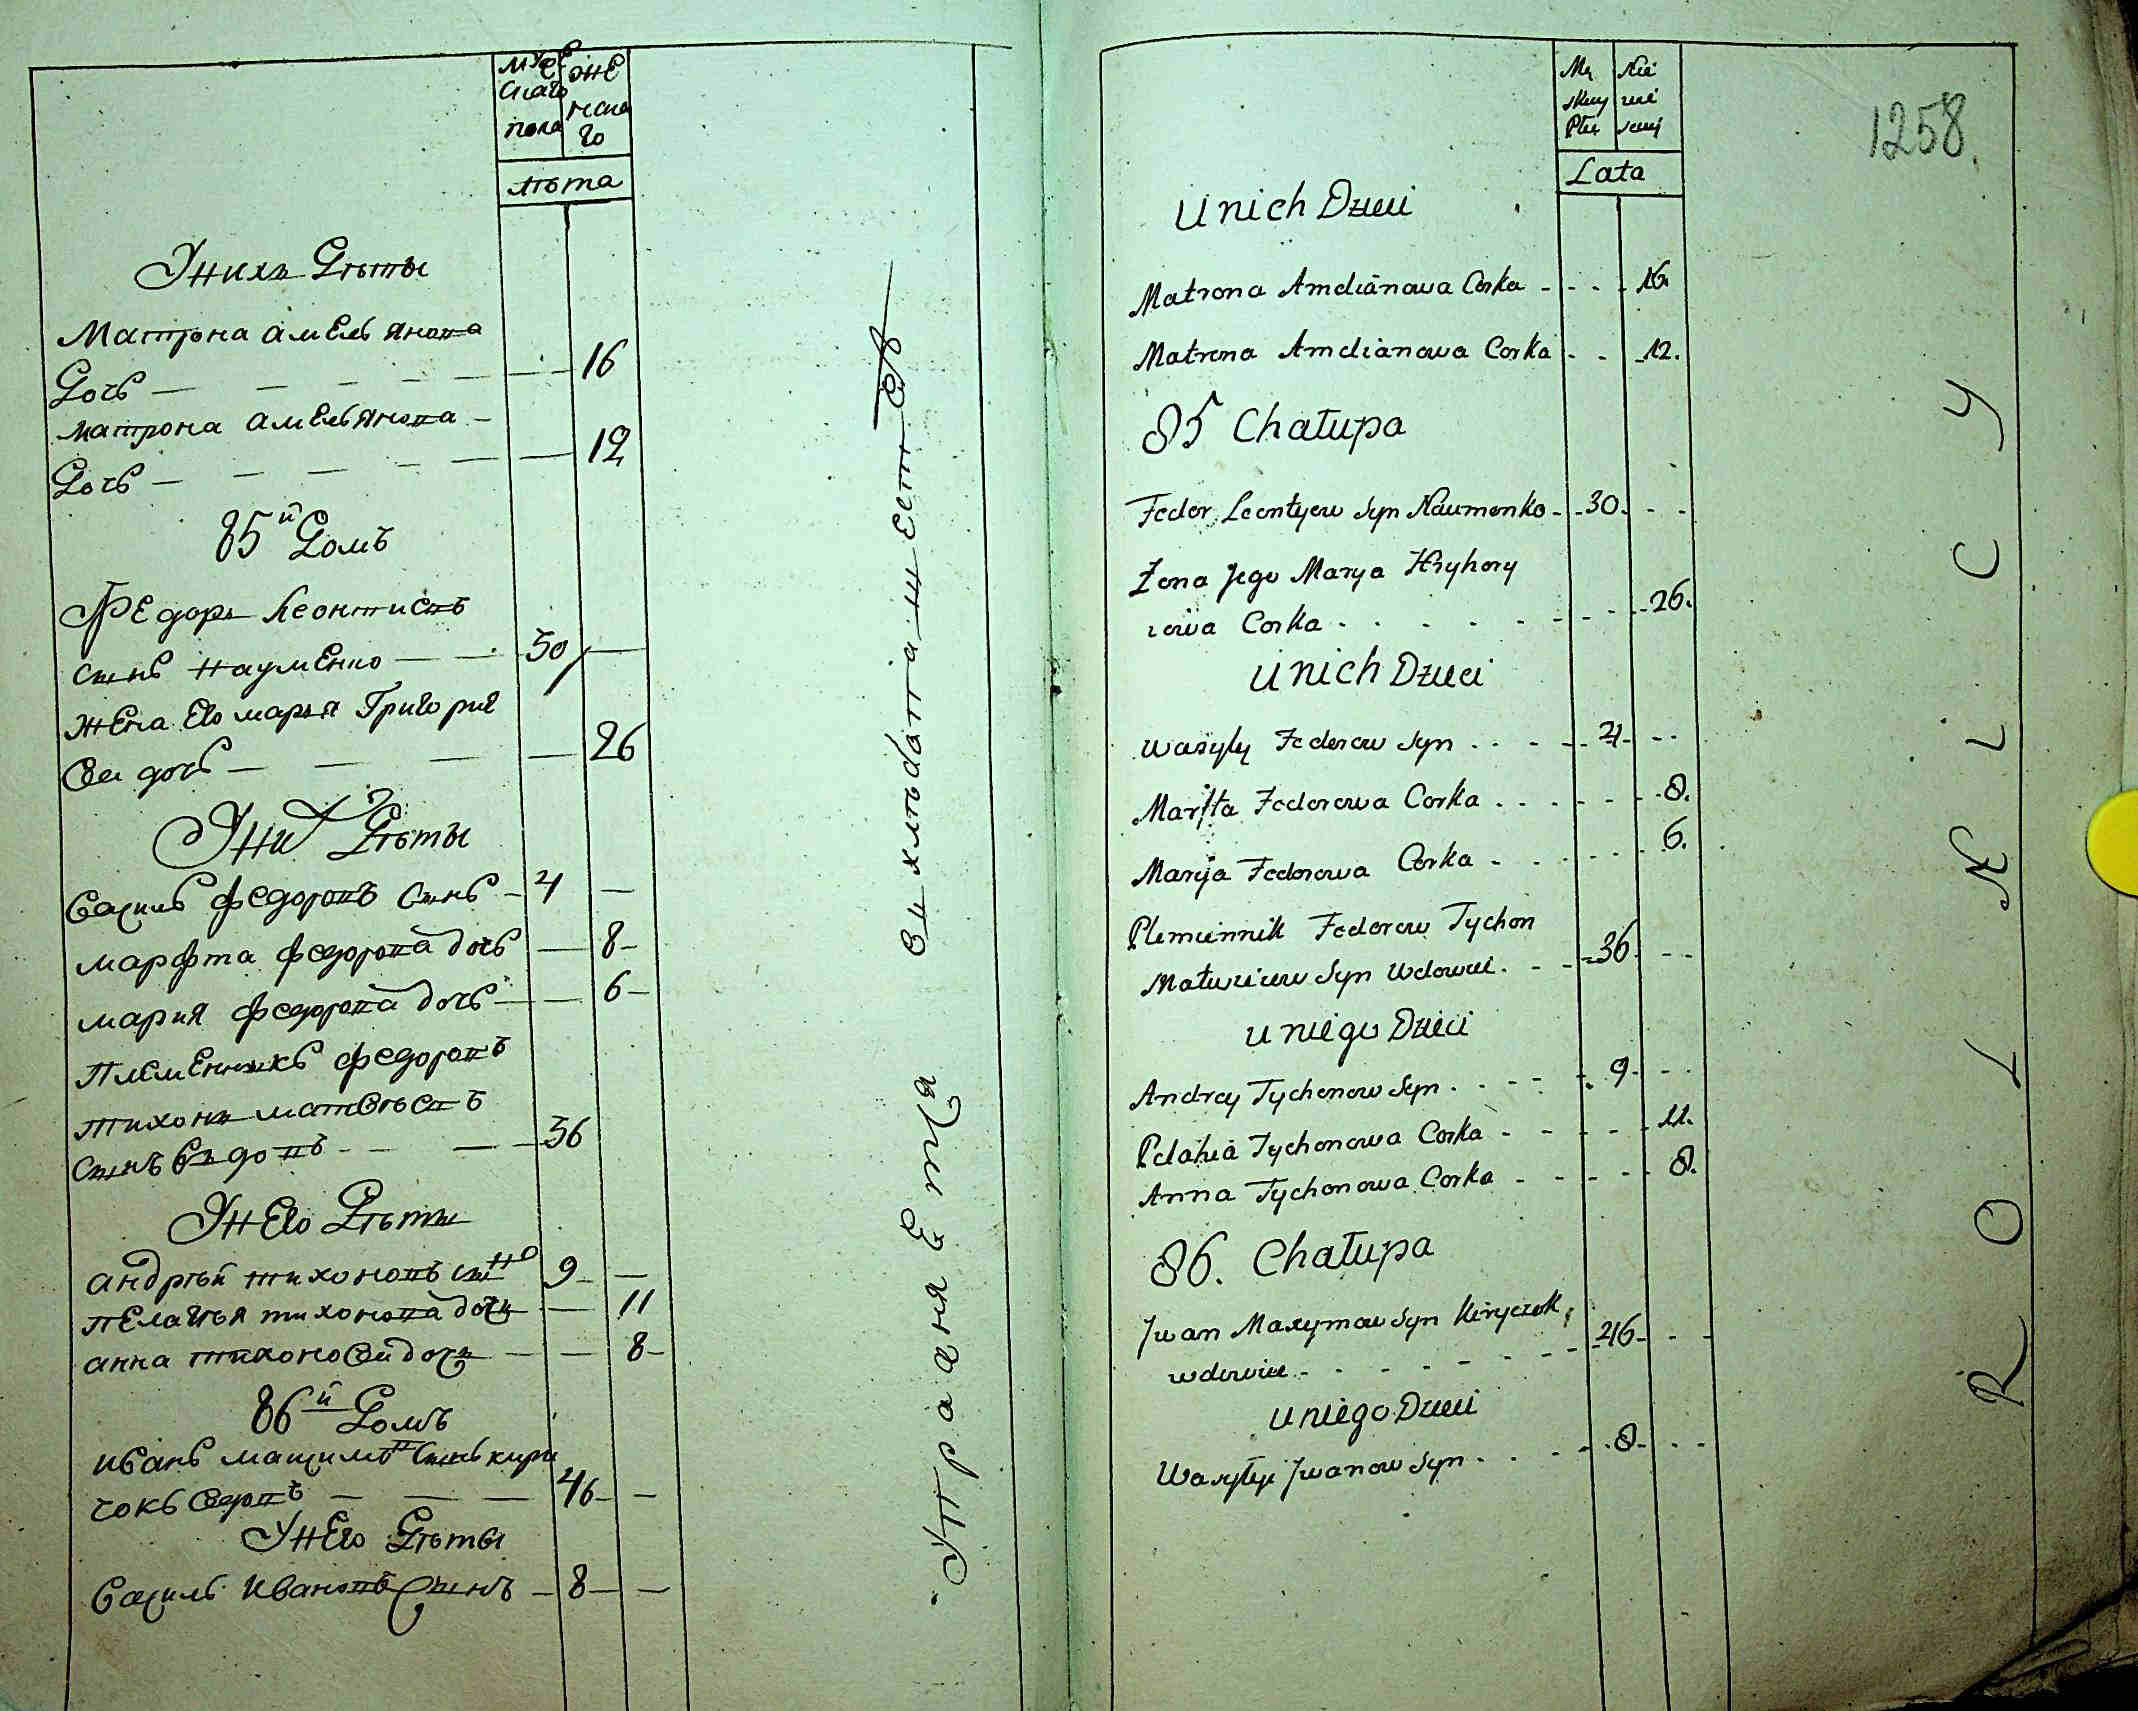 мужескаго пола
женскаго
лѣта
Унихъ Дѣты
Матрона амельянова
Дочь — 16
матрона амельянова
Дочь — 12
85й Домъ
Федоръ Леонтиевъ
сынъ науменко — 30
жена его марья Григорие
ва дочь — 26
Уних Дѣты
Василь федоровъ сынъ — 4
марфта федорова дочь — 8
мария федорова дочь — 6
племенникъ федоровъ
тихонъ матвѣевъ
сынъ вдовъ — 36
Унего Дѣты
андрѣй тихоновъ сынъ 9
пелагѣя тихонова дочь — 11
анна тихонова дочь — 8
86й Домъ
иванъ максимовъ сынъ кири
чокъ вдовъ — 46
Унего Дѣты
Василь Ивановъ Сынъ — 8
Управляетца
вы хлѣбопашеств
Męskiey Płci
Nie wie sciej
Lata
1258.
U nich Dzieci
Matrona Amelianowa Corka - - - 16.
Matrona Amelianowa Corka - - 12.
85 Chałupa
Fedor Leontyew Syn Naumenko - 30. - -
Żona Jego Marya Hryhory
iewa Corka - - - 26.
U nich Dzieci
Wasyly Fedorow Syn - - - 4 - -
Marfta Fedorowa Corka - - - 8.
Maryja Fedorowa Corka - - - 6.
Plemiennik Fedorow Tychon
Matwiiew Syn Wdowiec - - 36. - -
U niego Dzieci
Andrey Tychonow Syn - - - 9 - -
Pelahia Tychonowa Corka - - - 11.
Anna Tychonowa Corka - - - 8.
86. Chałupa
Jwan Maxymow Syn Kiryczok,
wdowiec - - - 46 - -
U niego Dzieci
Wasylyi Jwanow Syn - - - 8 - -
ROLNICY